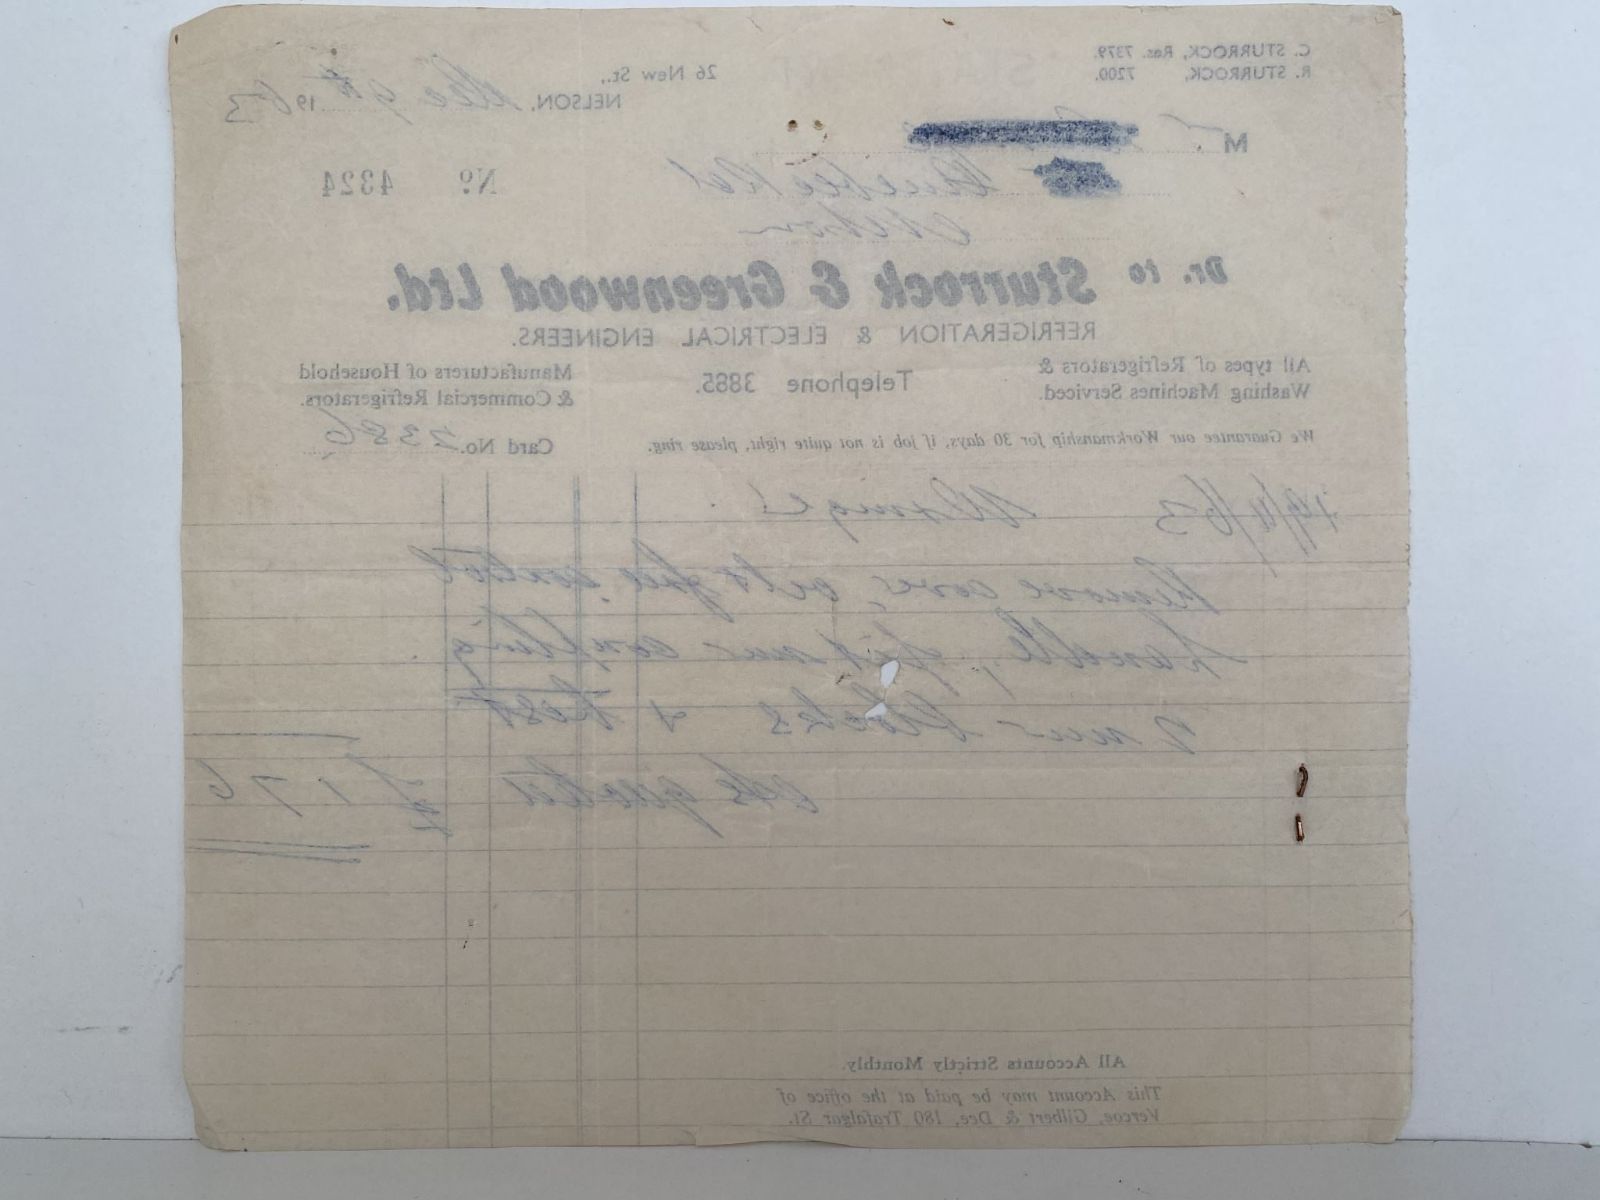 C. STURROCK, Res. 7379.
R. STURROCK, 7200.
26 New St.,
NELSON, Dec 9th 1963
M
Quebec Rd
Nelson
No 4324
Dr. to Sturrock & Greenwood Ltd.
REFRIGERATION & ELECTRICAL ENGINEERS.
All types of Refrigerators &
Washing Machines Serviced.
Telephone 3885.
Manufacturers of Household
& Commercial Refrigerators.
We Guarantee our Workmanship for 30 days, if job is not quite right, please ring.
Card No. 2386
Remove cover, free control
handle, fit new coupling
2 new blocks & test
As quoted £ 1 7 6
All Accounts Strictly Monthly.
This Account may be paid at the office of
Vercoe, Gilbert & Dee, 180 Trafalgar St.